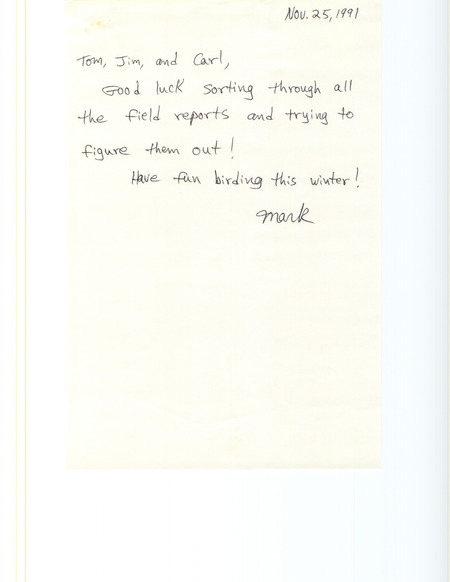 Nov. 25, 1991
Tom, Jim, and Carl,
Good luck sorting through all
the field reports and trying to
figure them out!
Have fun birding this winter!
Mark